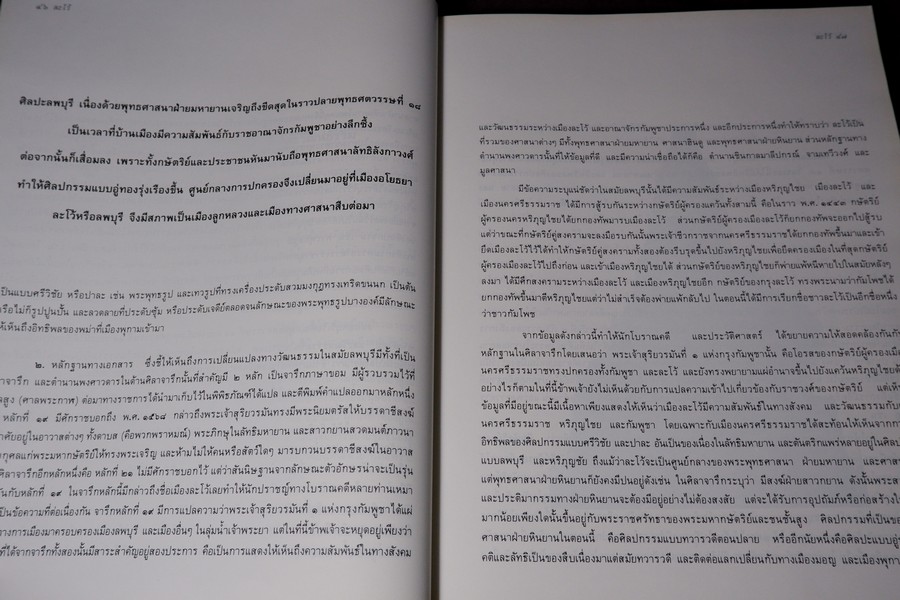 ศิลปะลพบุรี เนื่องด้วยพุทธศาสนาฝ่ายมหายานเจริญถึงขีดสุดในราวปลายพุทธศตวรรษที่ ๑๘
เป็นเวลาที่บ้านเมืองมีความสัมพันธ์กับราชอาณาจักรกัมพูชาอย่างลึกซึ้ง
ต่อจากนั้นก็เสื่อมลง เพราะทั้งกษัตริย์และประชาชนหันมานับถือพุทธศาสนาลัทธิลังกาวงศ์
ทำให้ศิลปกรรมแบบอู่ทองรุ่งเรืองขึ้น ศูนย์กลางการปกครองจึงเปลี่ยนมาอยู่ที่เมืองอโยธยา
ละโว้หรือลพบุรี จึงมีสภาพเป็นเมืองลูกหลวงและเมืองทางศาสนาสืบต่อมา
เป็นแบบศรีวิชัย หรือปาละ เช่น พระพุทธรูป และเทวรูปที่ทรงเครื่องประดับสวมมงกุฎทรงเทริดขนนก เป็นต้น
หรือไม่ก็รูปปูนปั้น และลวดลายที่ประดับซุ้ม หรือประดับเจดีย์ตลอดจนลักษณะของพระพุทธรูปบางองค์มีลักษณะ
ให้เห็นถึงอิทธิพลของพม่าที่เมืองพุกามเข้ามา
๒. หลักฐานทางเอกสาร ซึ่งชี้ให้เห็นถึงการเปลี่ยนแปลงทางวัฒนธรรมในสมัยลพบุรีมีทั้งที่เป็น
จารึก และตำนานพงศาวดารในด้านศิลาจารึกนั้นที่สำคัญมี ๒ หลัก เป็นจารึกภาษาขอม มีผู้รวบรวมไว้ที่
สูง (ศาลพระกาฬ) ต่อมาทางราชการได้นำมาเก็บไว้ในพิพิธภัณฑ์ได้แปล และตีพิมพ์คำแปลออกมาหลักหนึ่ง
หลักที่ ๑๙ มีศักราชบอกถึง พ.ศ. ๑๕๖๘ กล่าวถึงพระเจ้าสุริยวรมันทรงมีพระนิยมตรัสให้บรรดาชีสงฆ์
อาศัยอยู่ในอาวาสต่างๆ ทั้งดาบส (คือพวกพราหมณ์) พระภิกษุในลัทธิมหายาน และสาวกยานสวดมนต์ภาวนา
กุศลแก่พระมหากษัตริย์ให้ทรงพระเจริญ และห้ามไม่ให้คนหรือสัตว์ใดๆ มารบกวนบรรดาชีสงฆ์ในอาวาส
ศิลาจารึกอีกหลักหนึ่งคือ หลักที่ ๒๑ ไม่มีศักราชบอกไว้ แต่ว่าสันนิษฐานจากลักษณะตัวอักษรน่าจะเป็นรุ่น
กับหลักที่ ๑๙ ในจารึกหลักนี้มีกล่าวถึงชื่อเมืองละโว้เลยทำให้นักปราชญ์ทางโบราณคดีหลายท่านเหมา
เป็นข้อความที่ต่อเนื่องกัน จารึกหลักที่ ๑๙ มีการแปลความว่าพระเจ้าสุริยวรมันที่ ๑ แห่งกัมพูชาได้แผ่
ทางการเมืองมาครอบครองเมืองลพบุรี และเมืองอื่นๆ ในลุ่มน้ำเจ้าพระยา แต่ในที่นี้ข้าพเจ้าจะหยุดอยู่เพียงว่า
ที่ได้จากจารึกทั้งสองนั้นมีสาระสำคัญอยู่สองประการ คือเป็นการแสดงให้เห็นถึงความสัมพันธ์ในทางสังคม
และวัฒนธรรมระหว่างเมืองละโว้ และอาณาจักรกัมพูชาประการหนึ่ง และอีกประการหนึ่งทำให้ทราบว่า ละโว้เป็น
ที่รวมของศาสนาต่างๆ มีทั้งพุทธศาสนาฝ่ายมหายาน ศาสนาฮินดู และพุทธศาสนาฝ่ายหินยาน ส่วนหลักฐานทาง
ตำนานพงศาวดารนั้นที่ให้ข้อมูลที่ดี และมีความน่าเชื่อถือได้ก็คือ ตำนานชินกาลมาลีปกรณ์ จามเทวีวงศ์ และ
มูลศาสนา
มีข้อความระบุแน่ชัดว่าในสมัยลพบุรีนั้นได้มีความสัมพันธ์ระหว่างเมืองหริภุญไชย เมืองละโว้ และ
เมืองนครศรีธรรมราช ได้มีการสู้รบกันระหว่างกษัตริย์ผู้ครองแคว้นทั้งสามนี้ คือในราว พ.ศ. ๑๔๔๓ กษัตริย์
ผู้ครองนครหริภุญไชยได้ยกกองทัพมารบเมืองละโว้ ส่วนกษัตริย์ผู้ครองเมืองละโว้ก็ยกกองทัพจะออกไปสู้รบ
แต่ว่าขณะที่กษัตริย์คู่สงครามจะลงมือรบกันนั้นพระเจ้าชีวกราชจากนครศรีธรรมราชได้ยกกองทัพขึ้นมาและเข้า
ยึดเมืองละโว้ไว้ได้ทำให้กษัตริย์คู่สงครามทั้งสองต้องรีบรุดขึ้นไปยังหริภุญไชยเพื่อยึดครองเมืองในที่สุดกษัตริย์
ผู้ครองเมืองละโว้ไปถึงก่อน และเข้าเมืองหริภุญไชยได้ ส่วนกษัตริย์ของหริภุญไชยก็พ่ายแพ้หนีหายไปในสมัยหลังๆ
ลงมา ได้มีศึกสงครามระหว่างเมืองละโว้ และเมืองหริภุญไชยอีก กษัตริย์ของกรุงละโว้ ทรงพระนามว่ากัมโพชได้
ยกกองทัพขึ้นมาตีหริภุญไชยแต่ว่าไม่สำเร็จต้องพ่ายแพ้กลับไป ในตอนนี้ได้มีการเรียกชื่อชาวละโว้เป็นอีกชื่อหนึ่ง
ว่าชาวกัมโพช
จากข้อมูลดังกล่าวนี้ทำให้นักโบราณคดี และประวัติศาสตร์ ได้ขยายความให้สอดคล้องกันกับ
หลักฐานในศิลาจารึกโดยเสนอว่า พระเจ้าสุริยวรมันที่ ๑ แห่งกรุงกัมพูชานั้น คือโอรสของกษัตริย์ผู้ครองเมือง
นครศรีธรรมราชทรงปกครองทั้งกัมพูชา และละโว้ และยังทรงพยายามแผ่อำนาจขึ้นไปยังแคว้นหริภุญไชยด้วย
อย่างไรก็ตามในที่นี้ข้าพเจ้ายังไม่เห็นด้วยกับการแปลความเข้าไปเกี่ยวข้องกับราชวงศ์ของกษัตริย์ แต่เห็น
ข้อมูลที่มีอยู่ขณะนี้มีเนื้อหาเพียงแสดงให้เห็นว่าเมืองละโว้มีความสัมพันธ์ในทางสังคม และวัฒนธรรมกับ
นครศรีธรรมราช หริภุญไชย และกัมพูชา โดยเฉพาะกับเมืองนครศรีธรรมราชได้สะท้อนให้เห็นจากการ
อิทธิพลของศิลปกรรมแบบศรีวิชัย และปาละ อันเป็นของเนื่องในลัทธิมหายาน และตันตริกแพร่หลายอยู่ในศิลปะ
แบบลพบุรี และหริภุญชัย ถึงแม้ว่าละโว้จะเป็นศูนย์กลางของพระพุทธศาสนา ฝ่ายมหายาน และศาสนา
แต่พุทธศาสนาฝ่ายหินยานก็ยังคงมีปนอยู่ดังเช่น ในศิลาจารึกระบุว่า มีสงฆ์ฝ่ายสาวกยาน ดังนั้นพระสงฆ์
และประติมากรรมทางฝ่ายหินยานจะต้องมีอยู่อย่างไม่ต้องสงสัย แต่จะได้รับการอุปถัมภ์หรือก่อสร้าง
มากน้อยเพียงใดนั้นขึ้นอยู่กับพระราชศรัทธาของพระมหากษัตริย์และชนชั้นสูง ศิลปกรรมที่เป็นของ
ศาสนาฝ่ายหินยานในตอนนี้ คือศิลปกรรมแบบทวารวดีตอนปลาย หรืออีกนัยหนึ่งคือศิลปะแบบอู่ทอง
คติและลัทธิเป็นของสืบเนื่องมาแต่สมัยทวารวดี และติดต่อแลกเปลี่ยนกับทางเมืองมอญ และเมืองพุกาม